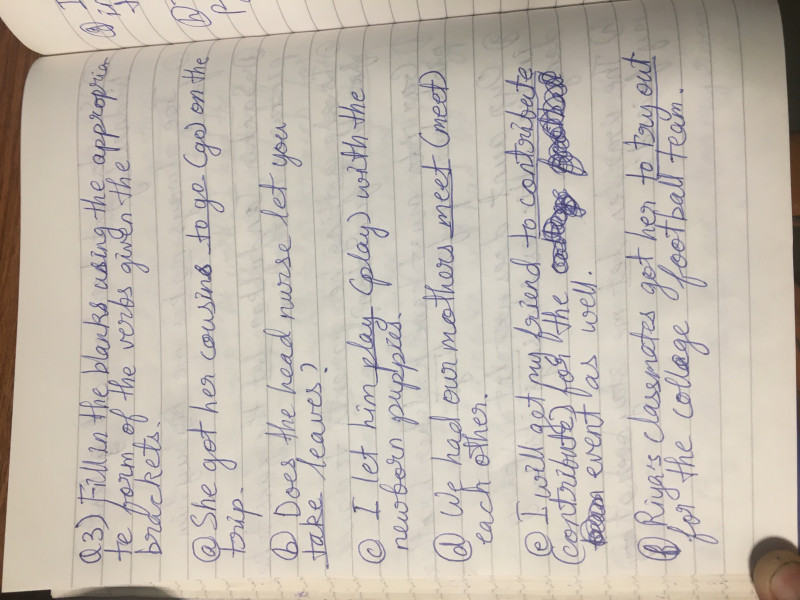 Q3) Fill in the blanks using the appropria
te form of the verbs given the
brackets.
(a) She got her cousins to go (go) on the
trip.
(b) Does the head nurse let you
take leaves?
(c) I let him play (play) with the
newborn puppies.
(d) We had our mothers meet (meet)
each other.
(e) I will get my friend to contribute
(contribute) for the
event as well.
(f) Riya's classmates got her to try out
for the collage football team.